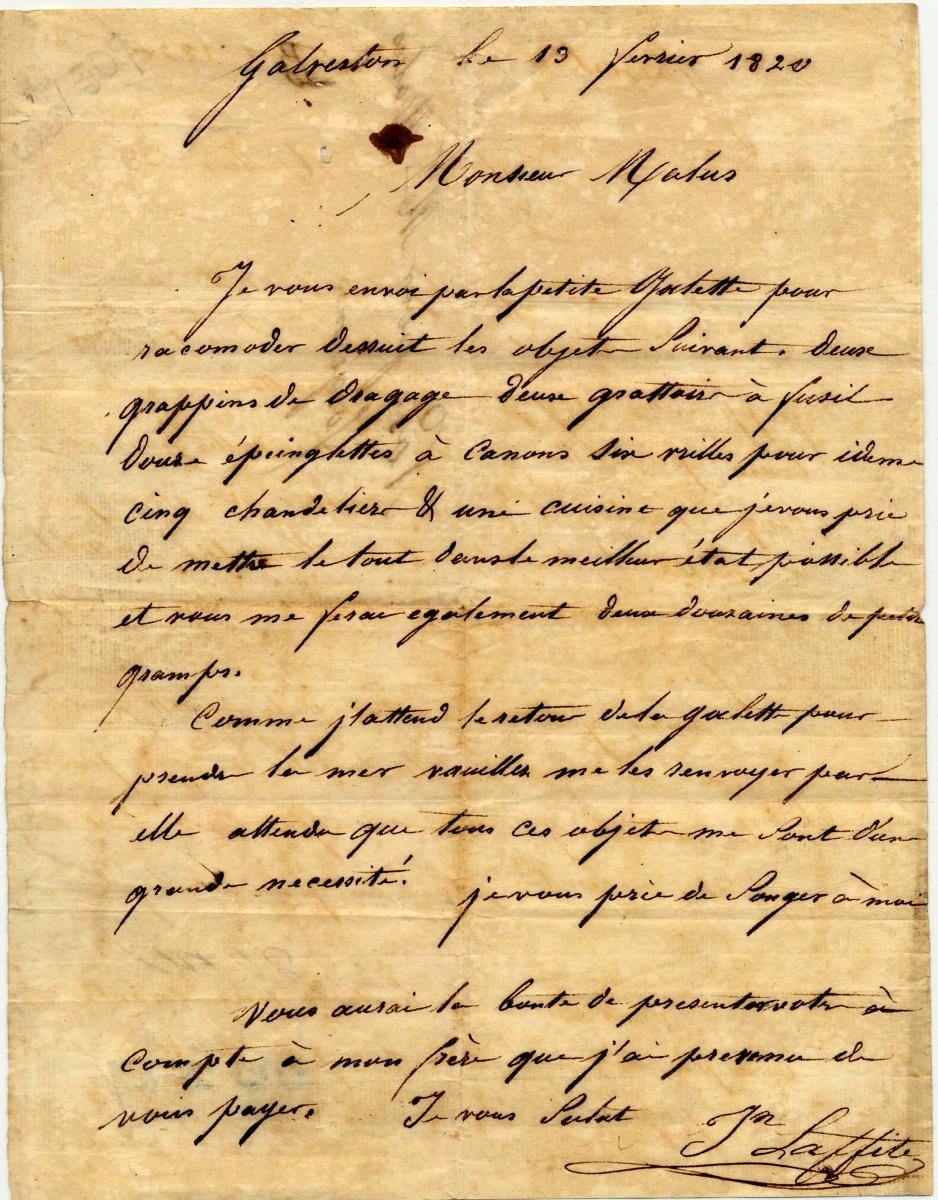 Galveston le 13 fevrier 1820
Monsieur Malus
Je vous envoi par la petite Goelette pour
racomoder dessuit les objets Suivant. deux
grappins de dragage deux grattoirs à fusil
douze épeinglettes à canons six vrilles pour idem
cinq chandeliers & une cuisine que je vous prie
de mettre le tout dans le meilleur état possible
et vous me ferai egalement deux douzaines de petits
gramps.
Comme j'attend le retour de la goelette pour
prendre la mer veuillez me les renvoyer par
elle attendu que tous ces objets me sont d'une
grande necessité. je vous prie de Songer à moi
Vous aurai la bonte de presenter votre à
compte à mon frère que j'ai prevenu de
vous payer. Je vous Salut
Jn Laffite